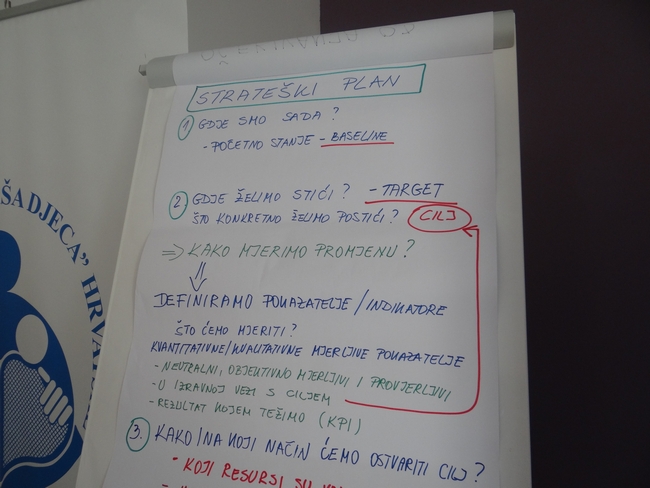 STRATEŠKI PLAN
1 GDJE SMO SADA?
- POČETNO STANJE - BASELINE
2 GDJE ŽELIMO STIĆI? - TARGET
ŠTO KONKRETNO ŽELIMO POSTIĆI? CILJ
⇒ KAKO MJERIMO PROMJENU?
DEFINIRAMO POKAZATELJE/INDIKATORE
ŠTO ĆEMO MJERITI?
KVANTITATIVNE/KVALITATIVNE MJERLJIVE POKAZATELJE
- NEUTRALNI, OBJEKTIVNO MJERLJIVI I PROVJERLJIVI
- U IZRAVNOJ VEZI S CILJEM
- REZULTAT KOJEM TEŽIMO (KPI)
3. KAKO/NA KOJI NAČIN ĆEMO OSTVARITI CILJ?
• KOJI RESURSI SU
ŠA DJECA” HRVAT